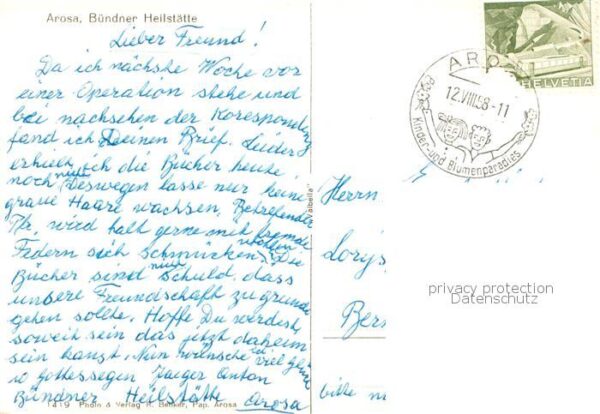 Arosa, Bündner Heilstätte
Lieber Freund!
Da ich nächste Woche vor
einer Operation stehe und
bei nachsehen der Koresponding
fand ich Deinen Brief. Leider
erhielt ich die Bücher heute
noch nicht. Deswegen lasse nur keine
graue Haare wachsen. Betrefender
wird halt gerne mit fremde
Federn sich schmücken wollen. Die
Bücher sind nur Schuld, dass
unsere Freundschaft zu grunde
gehen sollte. Hoffe Du werdest,
soweit sein das jetzt daheim
sein kanst. Nun wünsche ich viel
Gottessegen Jaeger Anton
Bündner Heilstätte Arosa
1419 Photo & Verlag Pap. Arosa
ARO
12.VIII.58-11
Kinder- und Blumenparadies
HELVETIA
Herrn
Lorys
Bern
bitte
privacy protection
Datenschutz